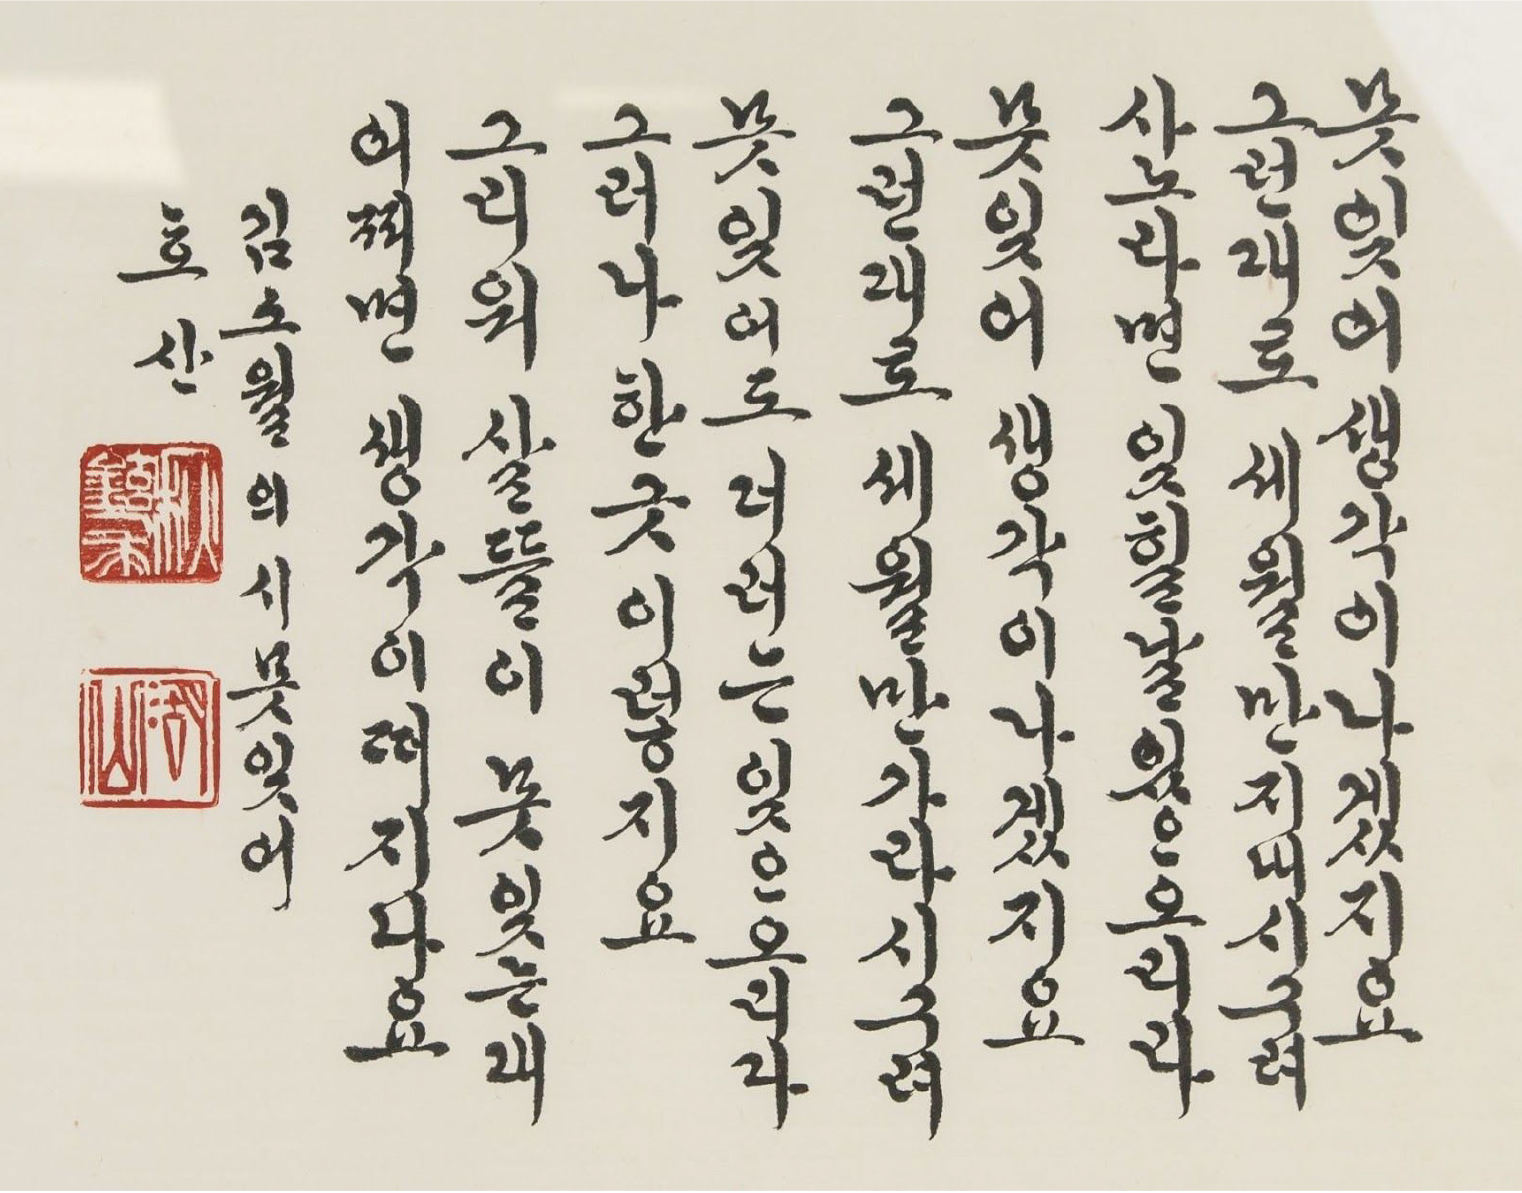 못잊어 생각이나겠지요
그런대로 세월만지내시구려
사노라면 잊힐날있으오리라
못잊어 생각이나겠지요
그런대로 세월만가라시구려
못잊어도 더러는잊으오리라
그러나 한긋이렇지요
그리워 살뜰이 못잊는대
어찌면 생각이떠지다요
김소월의시못잊어
호산